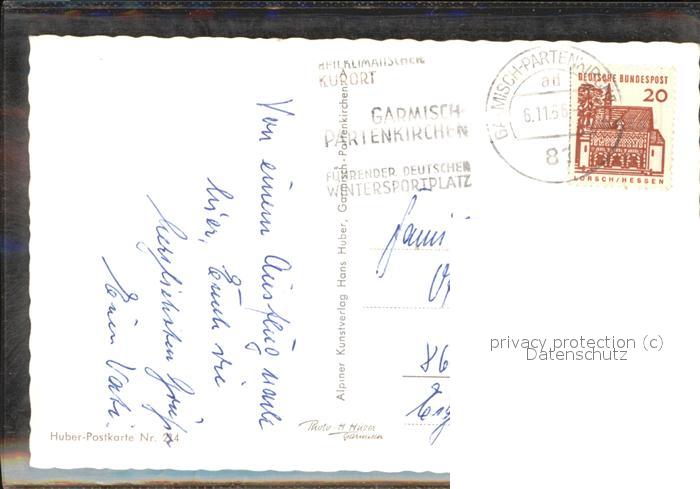 HEILKLIMATISCHER
KURORT
GARMISCH-
PARTENKIRCHEN
FÜHRENDER DEUTSCHER
WINTERSPORTPLATZ
GARMISCH-PARTENKIRCHEN
ad
6.11.66
81
DEUTSCHE BUNDESPOST
20
LORSCH/HESSEN
Von einem Ausflug nach
hier, Euch die
herzlichsten Grüße
Euer Vati.
Alpiner Kunstverlag Hans Huber, Garmisch-Partenkirchen
Fami
86
Photo-H. Huber
Garmisch
Huber-Postkarte Nr. 214
privacy protection (c)
Datenschutz